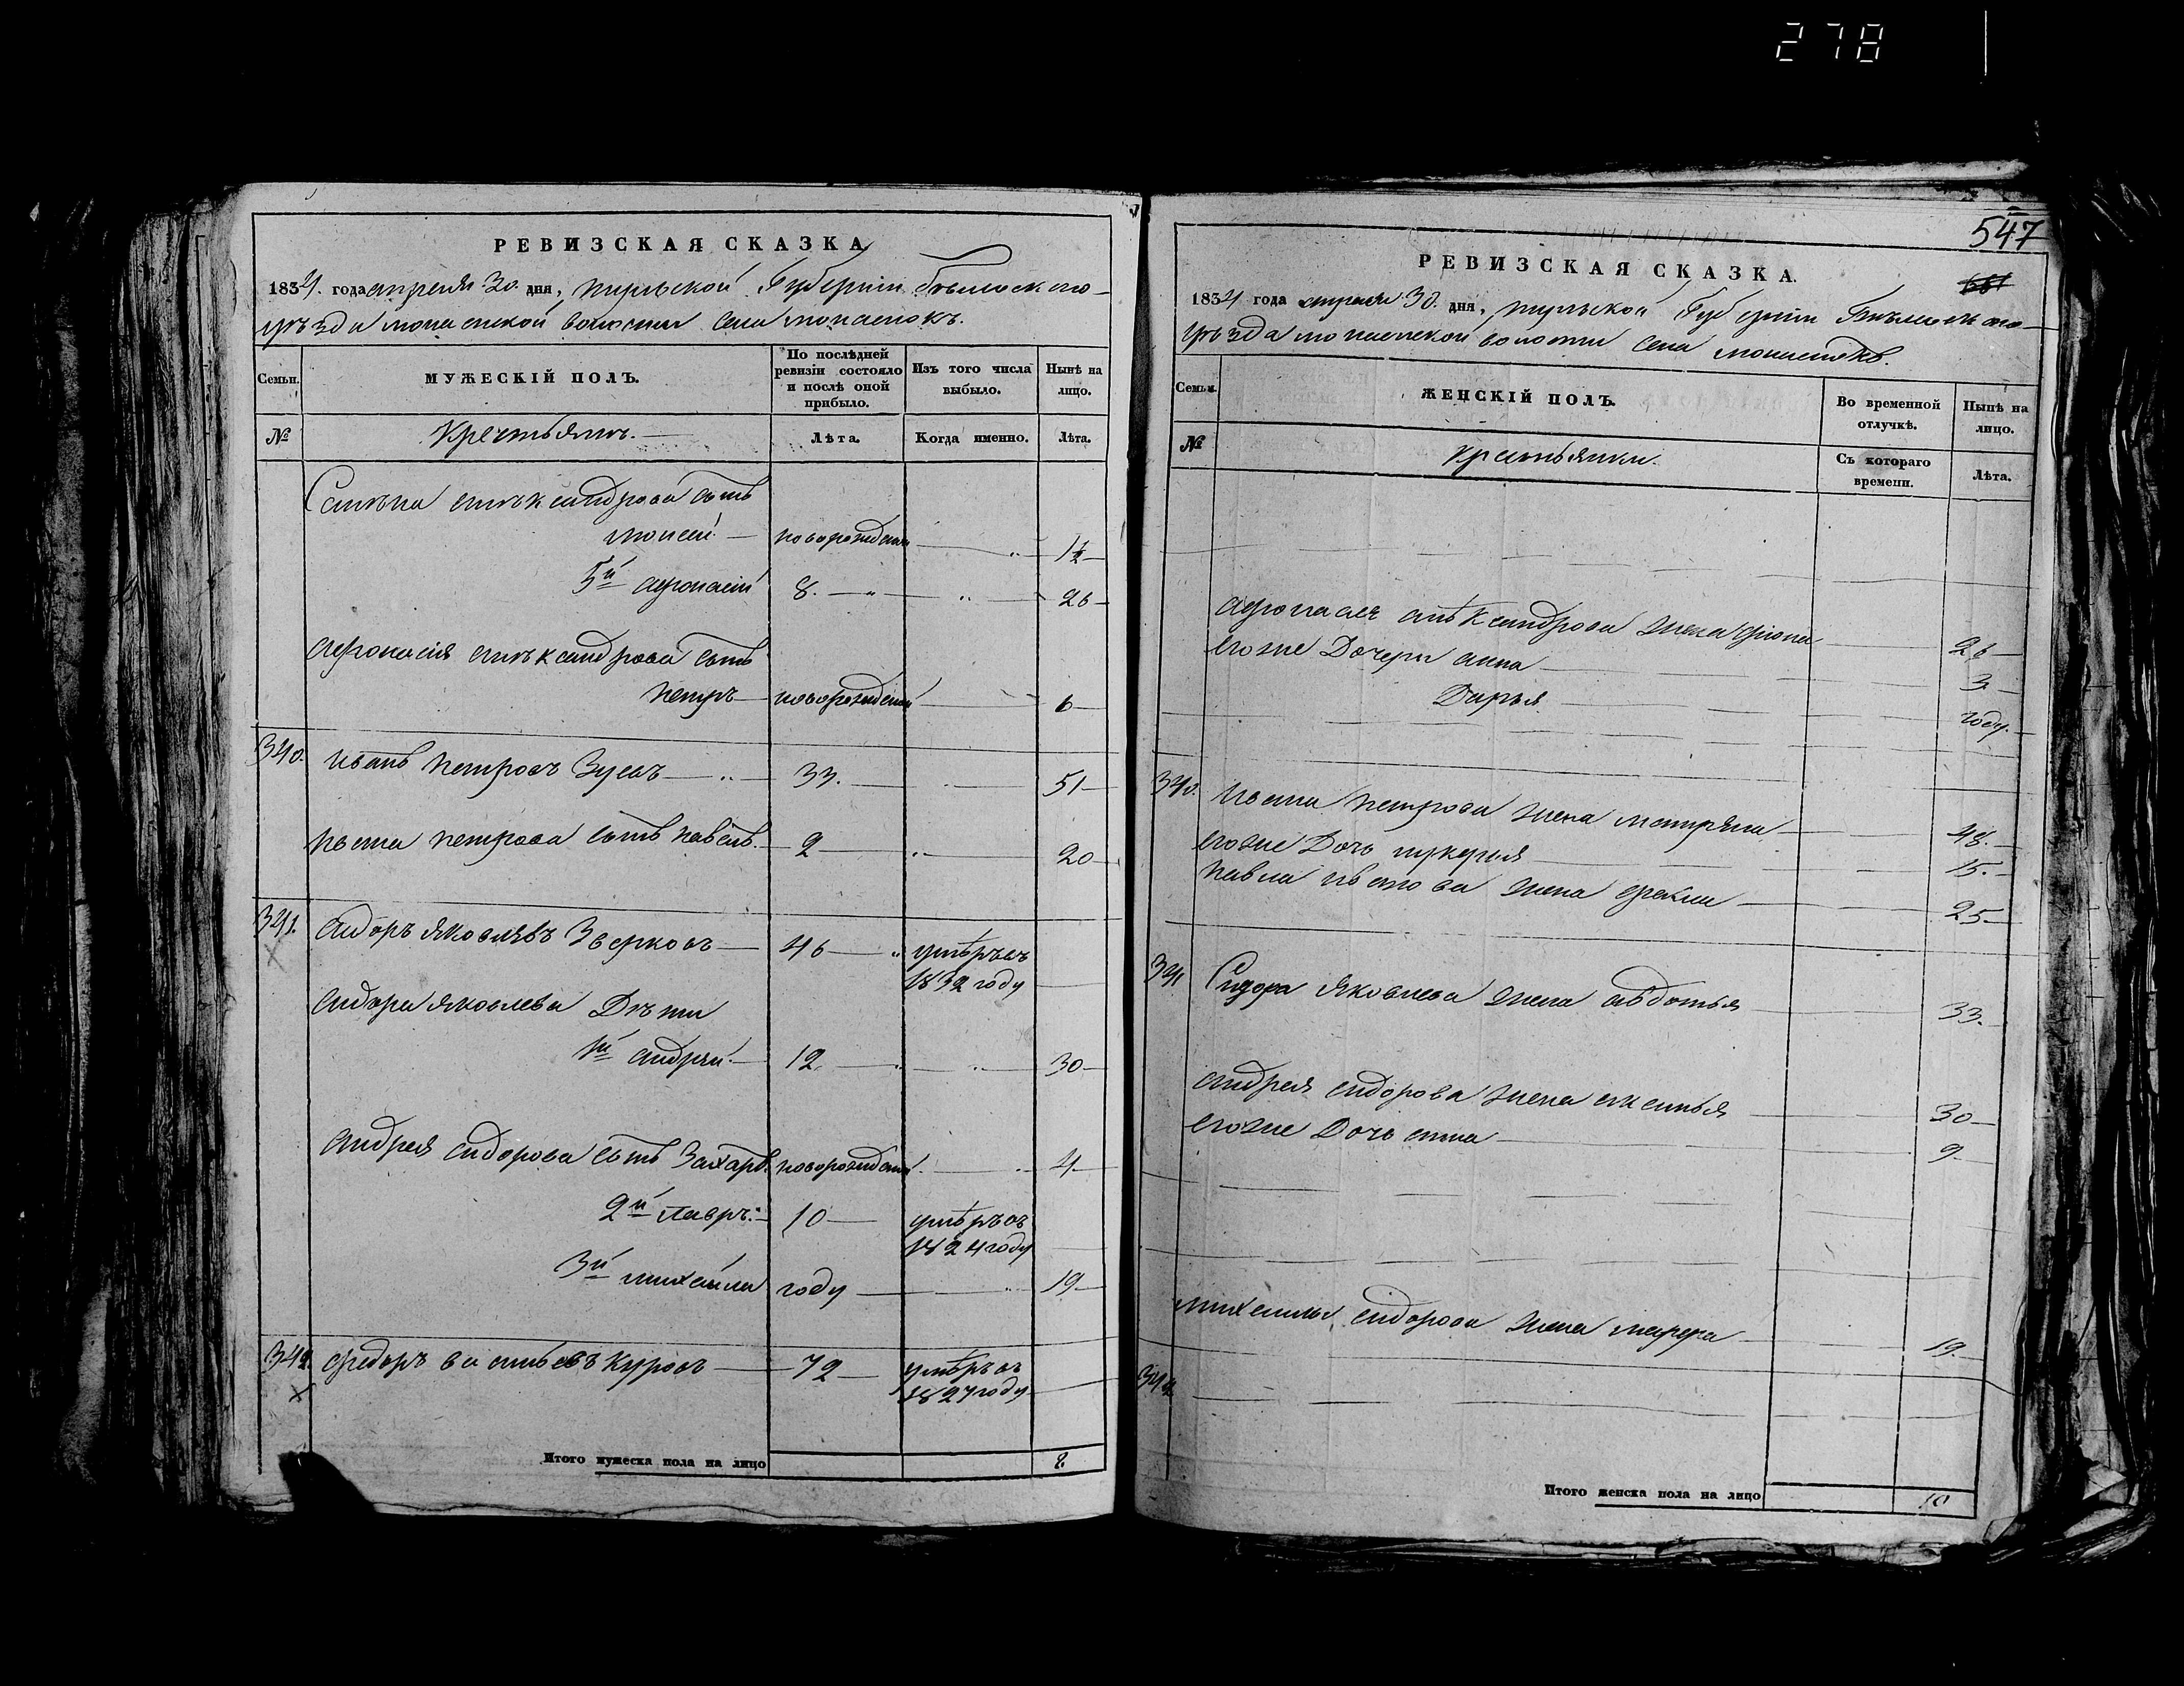 278
РЕВИЗСКАЯ СКАЗКА
1834. года апреля 30. дня, Губернiи
уѣзда волости села
Семьи.
МУЖЕСКІЙ ПОЛЪ.
По послѣдней ревизіи состояло и послѣ оной прибыло.
Изъ того числа выбыло.
Нынѣ на лицо.
№
Крестьянъ.
Лѣта.
Когда именно.
Лѣта.
александрова сынъ
моисей новорожденный 1½
5й афонасiй 8. 26
афонасiя александрова сынъ
петръ новорожденный 6
340. иванъ петровъ Зуевъ 33. 51
ивана петрова сынъ павелъ 2 20
341. сидоръ яковлевъ Зверковъ 46 умѣръ въ
1832 году
сидора яковлева Дѣти
1й андрей 12. 30
андрея сидорова сынъ Захаръ новорожденный 4
2й лавръ 10 умѣръ въ
1824 году
3й михайла году 19
342. федоръ васильевъ Куровъ 72 умѣръ въ
1827 году
Итого мужеска пола на лицо 8.
547
661
РЕВИЗСКАЯ СКАЗКА.
1834 года апреля 30. дня, Губернiи
уѣзда волости села
Семьи.
ЖЕНСКІЙ ПОЛЪ.
Во временной отлучкѣ.
Нынѣ на лицо.
№
Крестьянки.
Съ котораго времени.
Лѣта.
афонасья александрова жена 26
егоже Дочери анна 3
Дарья году.
340. ивана петрова жена матрена 48.
егоже Дочь лукерья 15.
павла иванова жена 25
341 Сидора яковлева жена авдотья 33.
андрея сидорова жена 30
егоже Дочь анна 9
михаилы сидорова жена марфа 19.
342
Итого женска пола на лицо 10